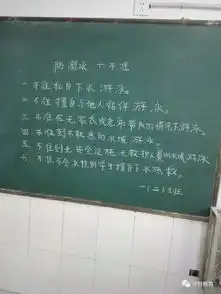 防溺水 六不准
一.不准私自下水游泳。
二.不准擅自与他人结伴游泳。
三.不准在无家长或老师带队的情况下游泳。
四.不准到不熟悉的水域游泳。
五.不准到无安全设施、无救护人员的水域游泳
六.不准不会水性的学生擅自下水施救。
一（二）班